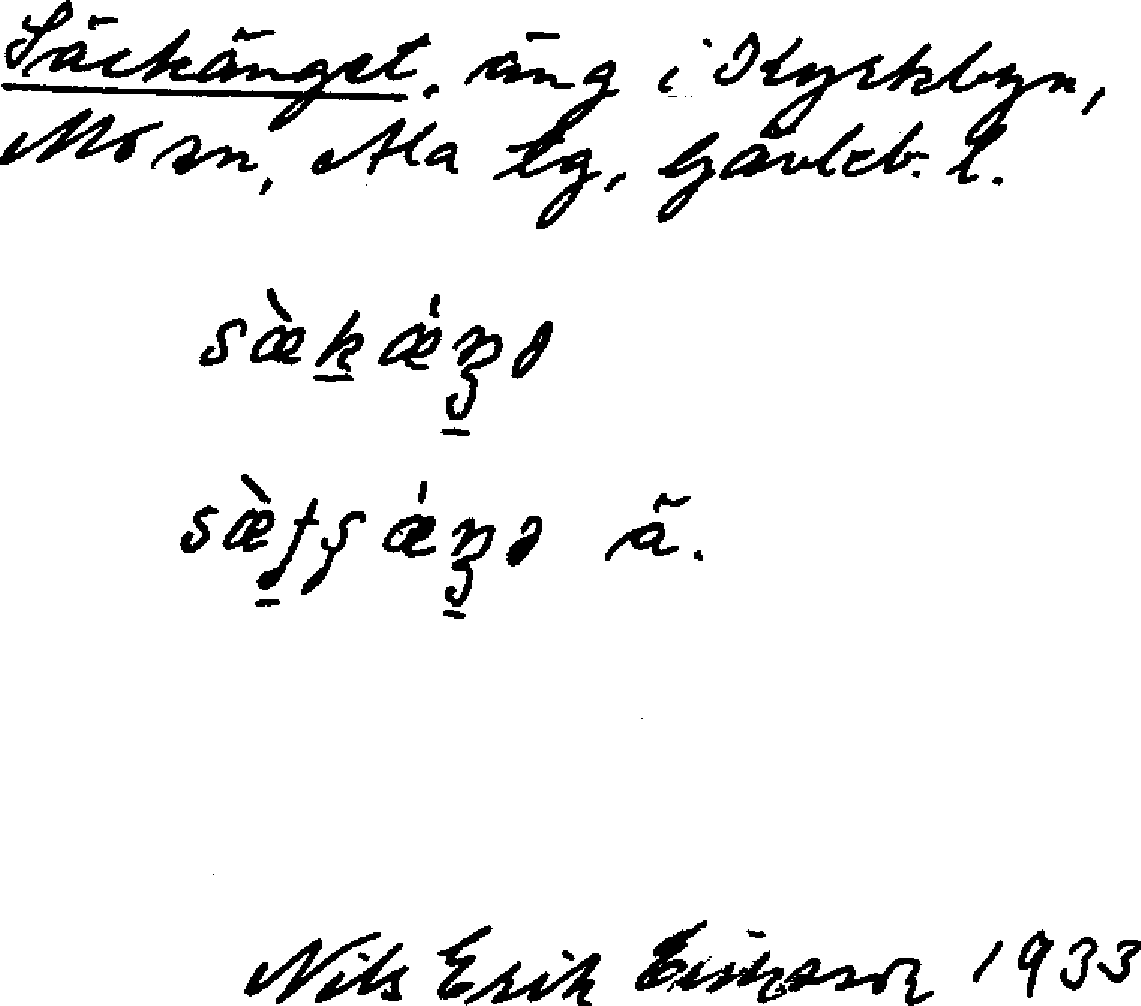 Säckänget, äng i Kyrkbyn,
Mo sn, Ala tg, Gävleb. l.
sæ̀kǽŋə
sæ̀ʃʂǽŋə ä.
Nils Erik 1933